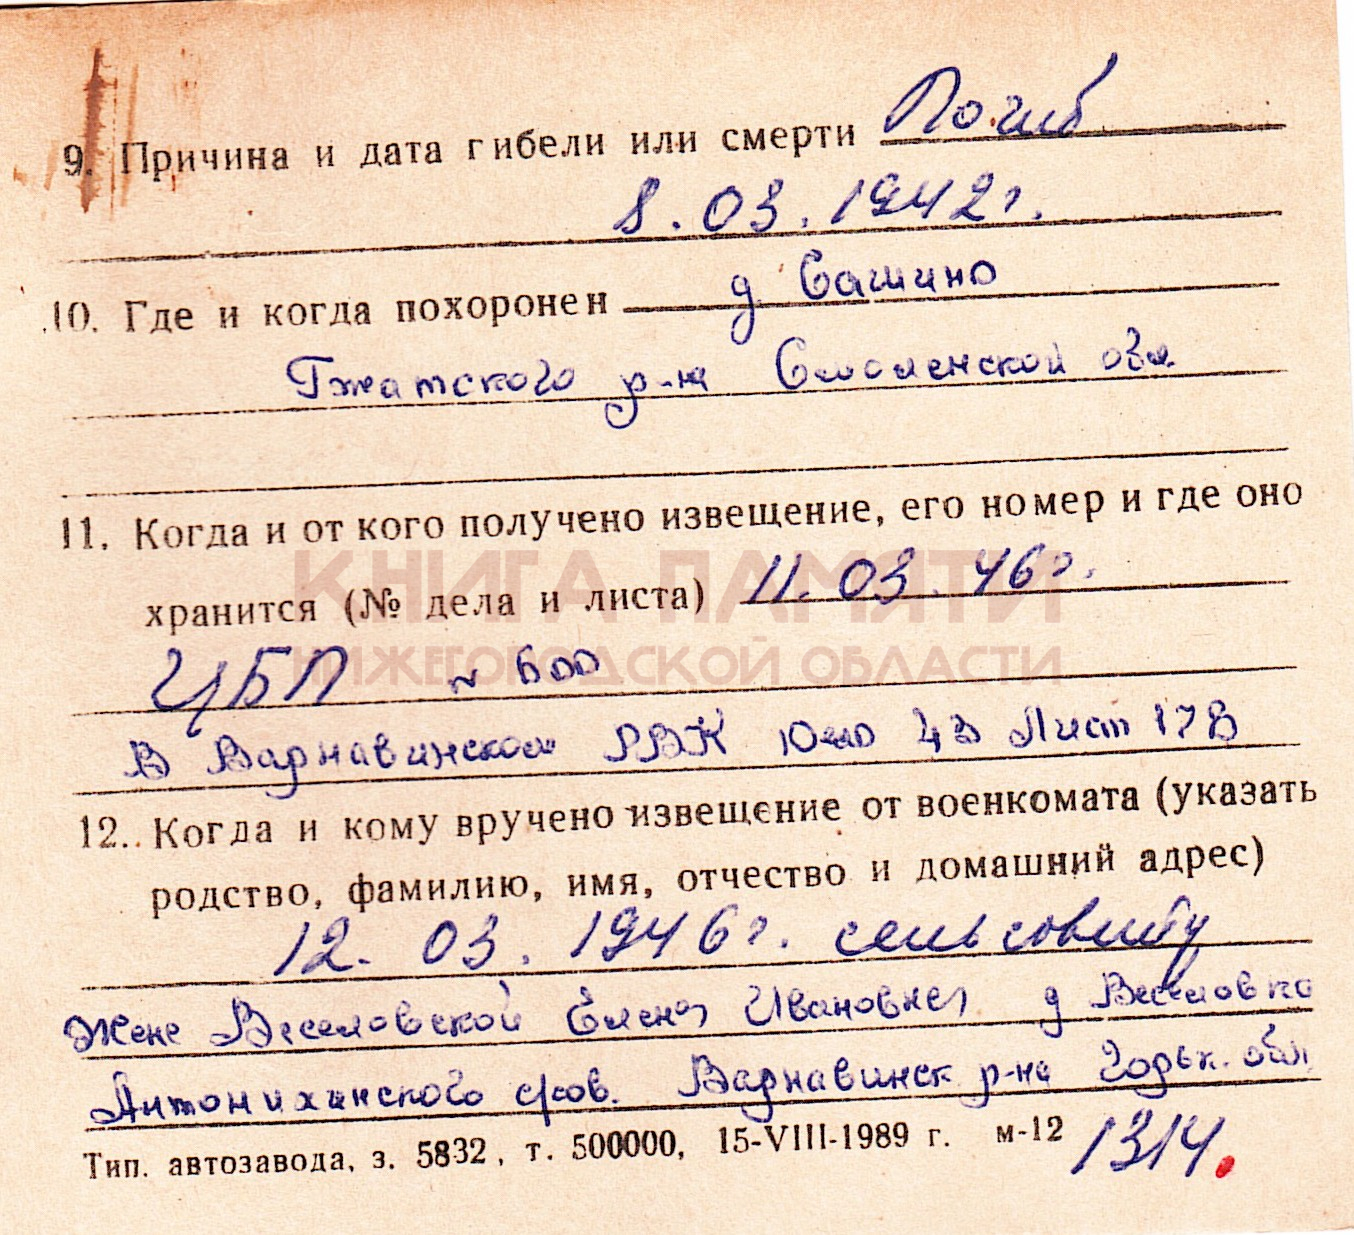 9. Причина и дата гибели или смерти Погиб
8.03.1942г.
10. Где и когда похоронен д Сашино
Гжатского р-на Смоленской обл
11. Когда и от кого получено извещение, его номер и где оно
КНИГА ПАМЯТИ
хранится (№ дела и листа) 11.03.46г.
НИЖЕГОРОДСКОЙ ОБЛАСТИ
ЦБП № 600
В Варнавинском РВК 43 Лист 178
12. Когда и кому вручено извещение от военкомата (указать
родство, фамилию, имя, отчество и домашний адрес)
12.03.1946г. сельсовету
Жене Веселовской Елене Ивановне д Веселовка
Антонихинского с/сов. Варнавинск р-на Горьк. обл
Тип. автозавода, з. 5832, т. 500000, 15-VIII-1989 г. м-12 1314.